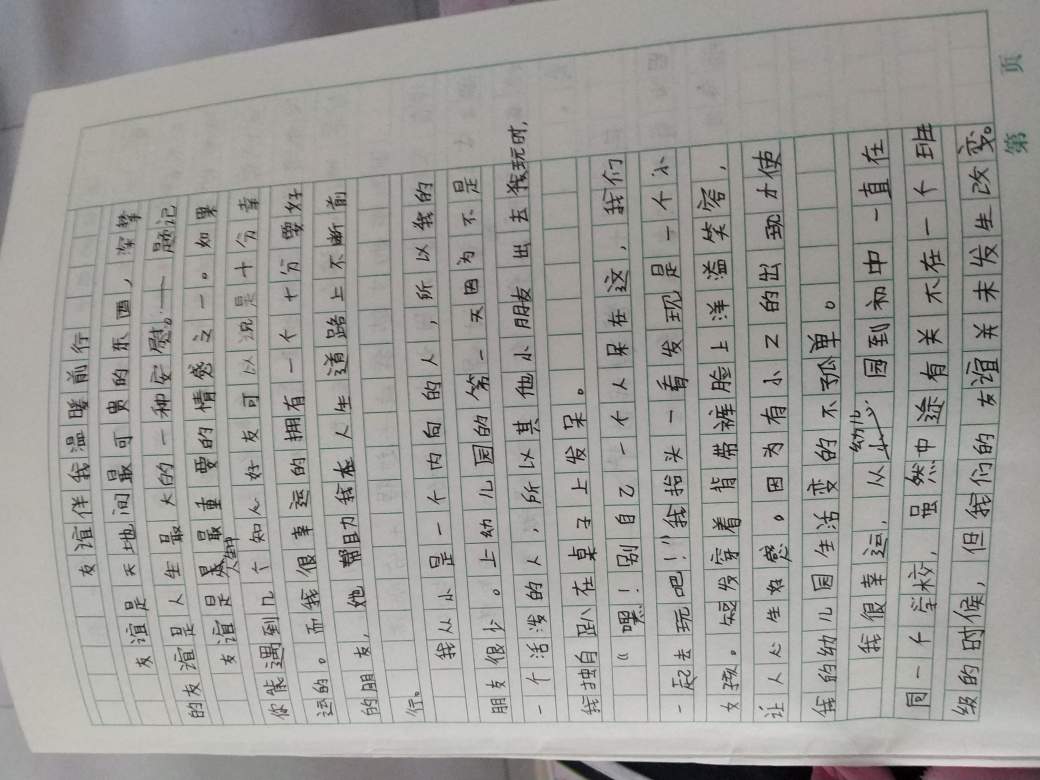 友谊伴我温暖前行
友谊是天地间最可贵的东西，深挚
的友谊是人生最大的一种安慰。——题记
友谊是人生中最重要的情感之一。如果
你能遇到几个知心好友可以说是十分幸
运的。而我很幸运的拥有一个十分要好
的朋友，她帮助我在人生道路上不断前
行。
我从小是一个内向的人，所以我的
朋友很少。上幼儿园的第一天因为不是
一个活泼的人，所以其他小朋友出去玩时，
我独自趴在桌子上发呆。
“嘿！别自己一个人呆在这，我们
一起去玩吧！”我抬头一看发现是一个小
女孩。短发穿着背带裤脸上洋溢笑容，
让人心生好感。因为有小Z的出现才使
我的幼儿园生活变的不孤单。
我很幸运，从幼儿园到初中一直在
同一个学校，虽然中途有关不在一个班
级的时候，但我们的友谊并未发生改变。
第 页